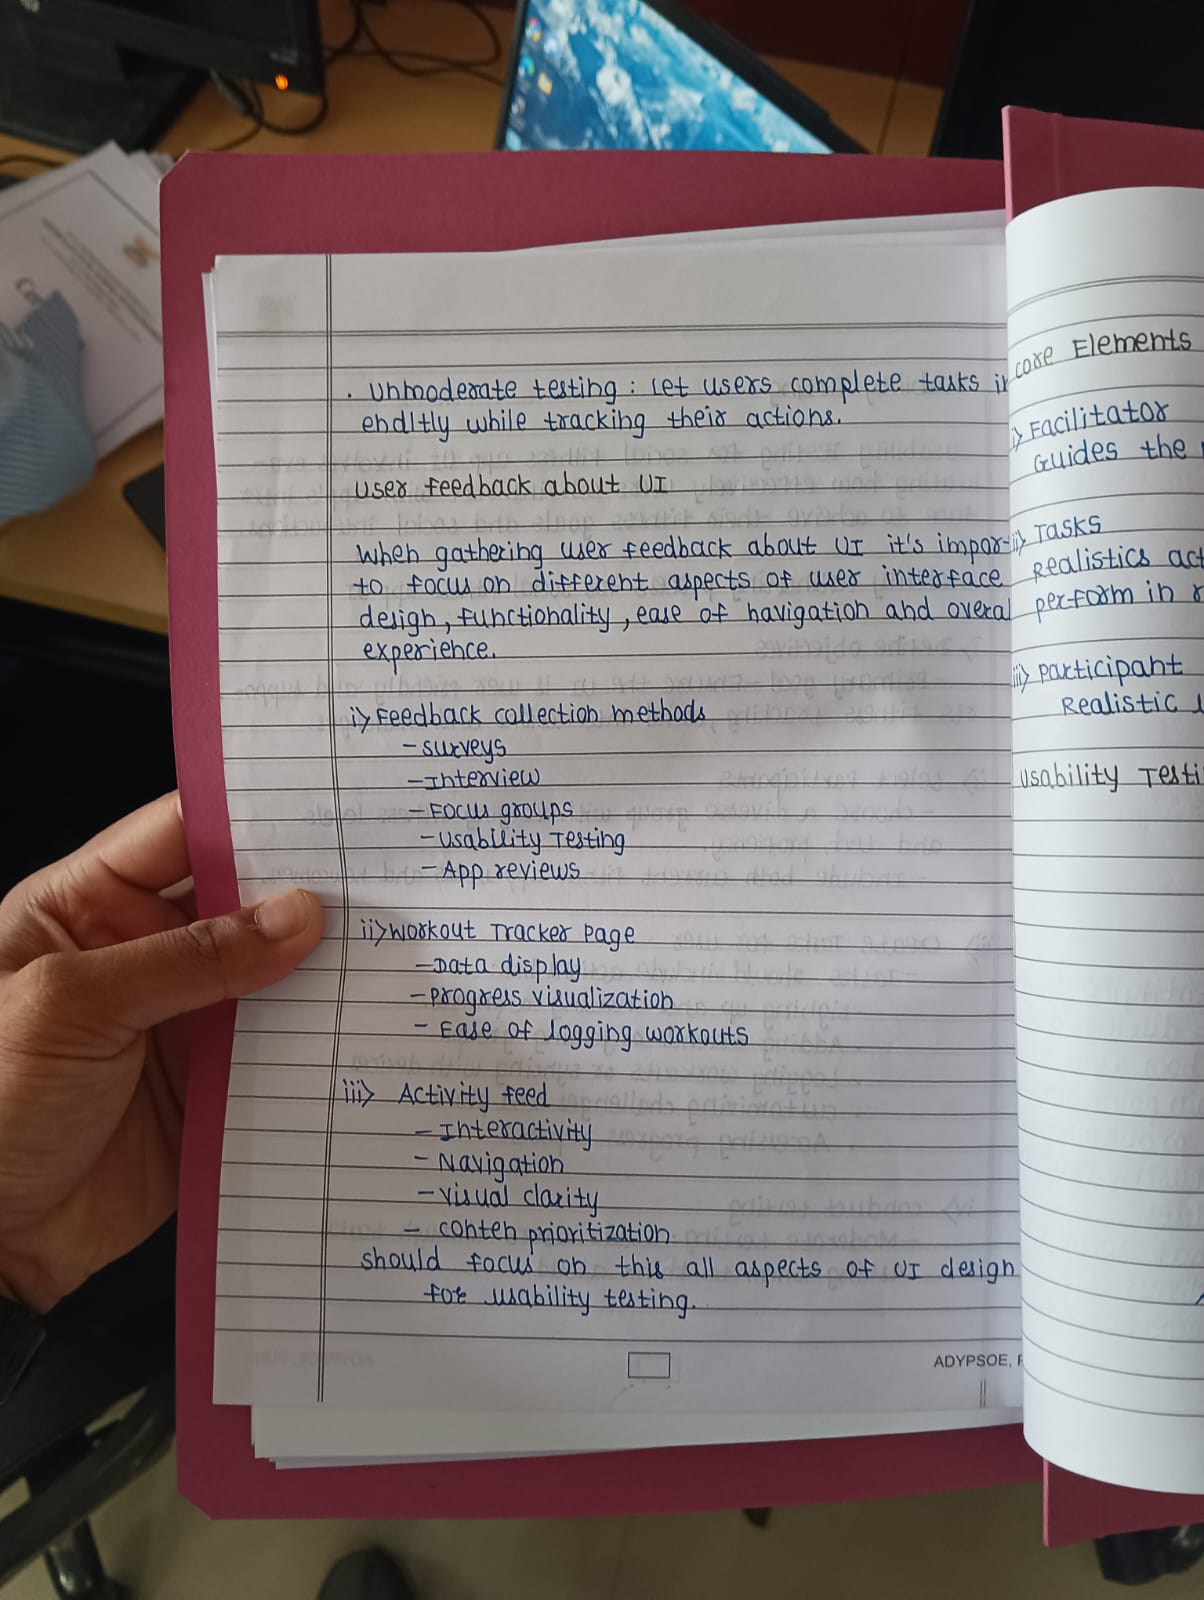 . Unmoderate testing : Let users complete tasks in
endltly while tracking their actions.
User feedback about UI
When gathering user feedback about UI it's impor-
to focus on different aspects of user interface
design, functionality, ease of navigation and overal
experience.
i) Feedback collection methods
- surveys
- Interview
- Focus groups
- Usability Testing
- App reviews
ii) Workout Tracker Page
- Data display
- progress visualization
- Ease of logging workouts
iii) Activity feed
- Interactivity
- Navigation
- visual clarity
- conten prioritization
should focus on this all aspects of UI design
for usability testing.
ADYPSOE,
core Elements
i) Facilitator
Guides the
ii) Tasks
Realistics act
perform in
iii) participant
Realistic
Usability Testi